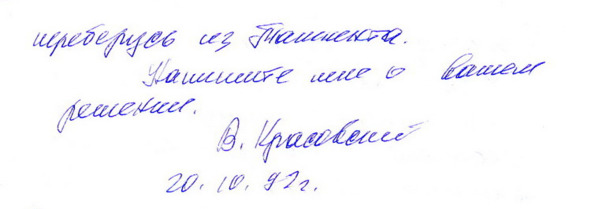 переберусь из Ташкента.
Напишите мне о Вашем
решении.
В. Красовский
20.10.92г.